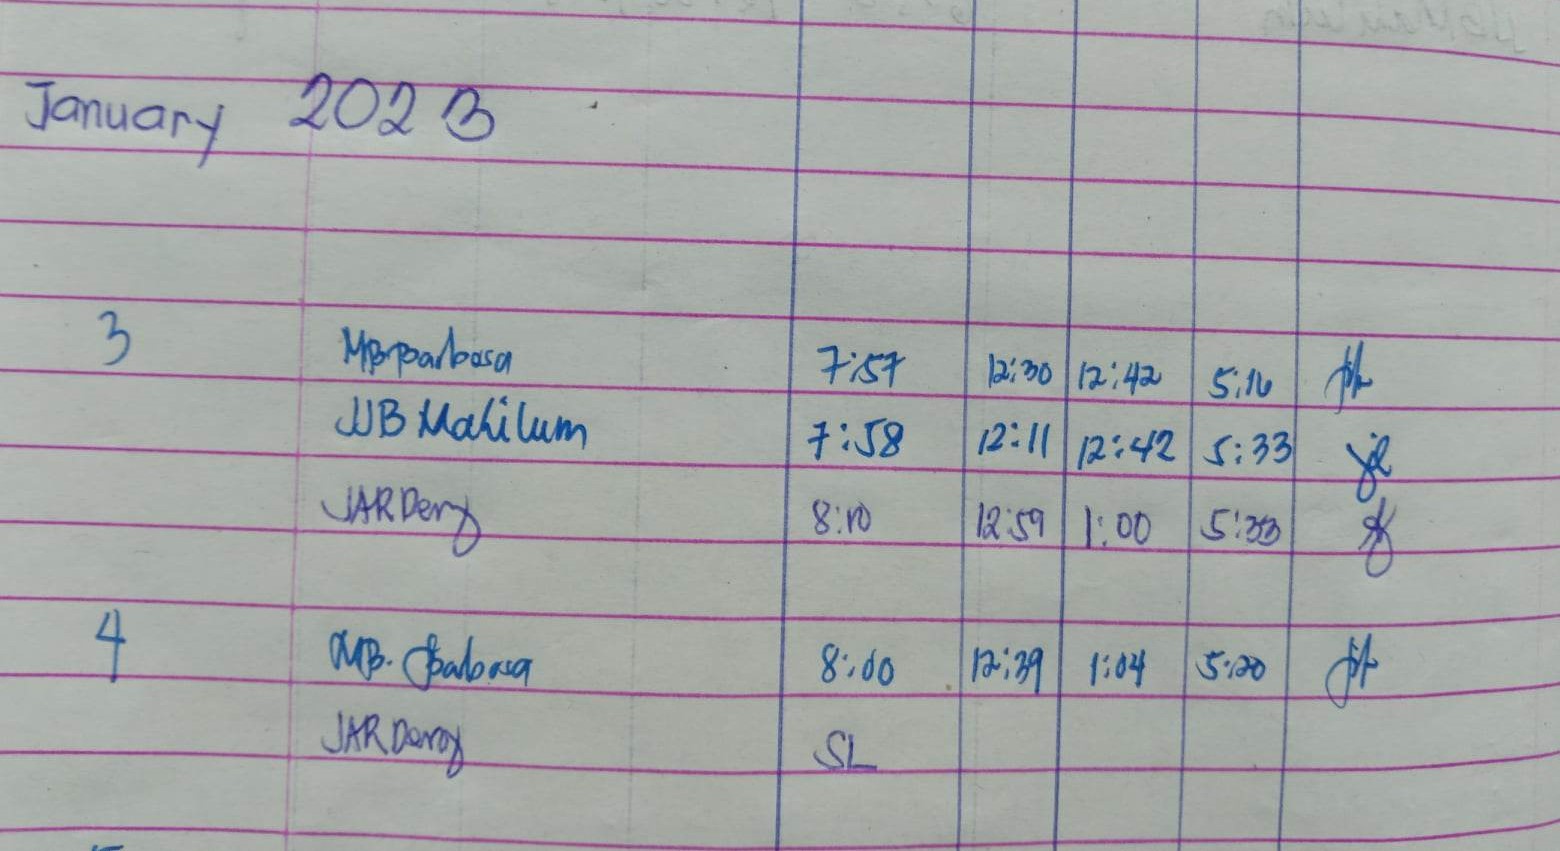 January 2023
3 MB Barbosa 7:57 12:30 12:42 5:16
JJB Mahilum 7:58 12:11 12:42 5:33
JAR Dery 8:10 12:59 1:00 5:33
4 MB. Barbosa 8:00 12:39 1:04 5:20
JAR Dery SL